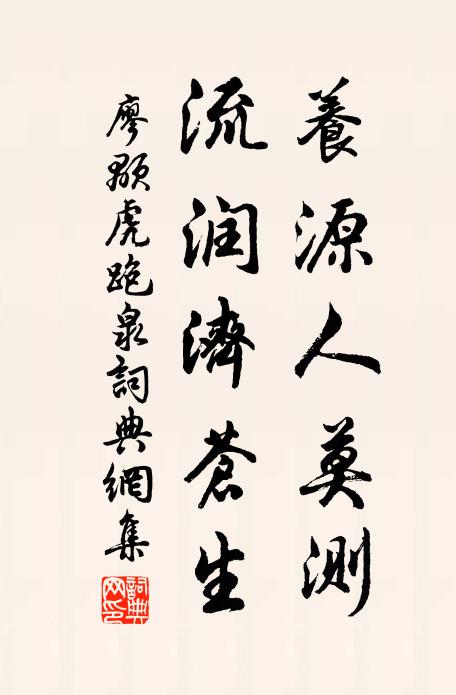 養源人莫測
流润濟蒼生
廖顒虎跑泉詞典網集
詞典網印